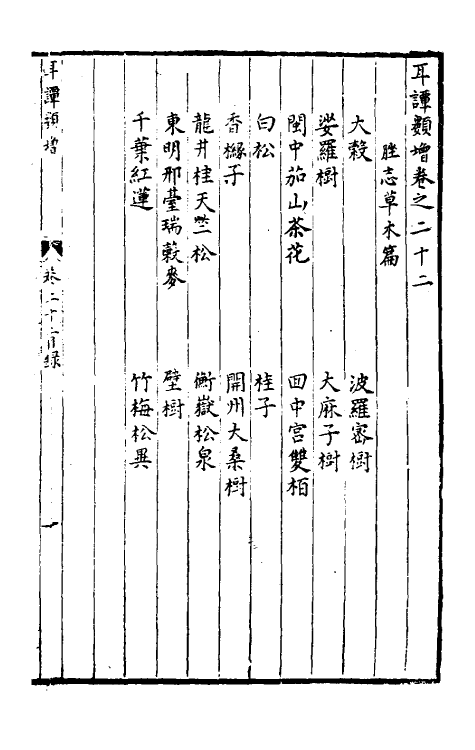 耳譚類增卷之二十二
脞志草木篇
大穀 波羅密樹
娑羅樹 大麻子樹
閩中茄山茶花 回中宮雙栢
白松 桂子
香櫞子 開州大桑樹
龍井桂天竺松 衡嶽松泉
東明邢臺瑞穀麥 壁樹
千葉紅蓮 竹梅松異
耳譚類增 卷二十二目録 一